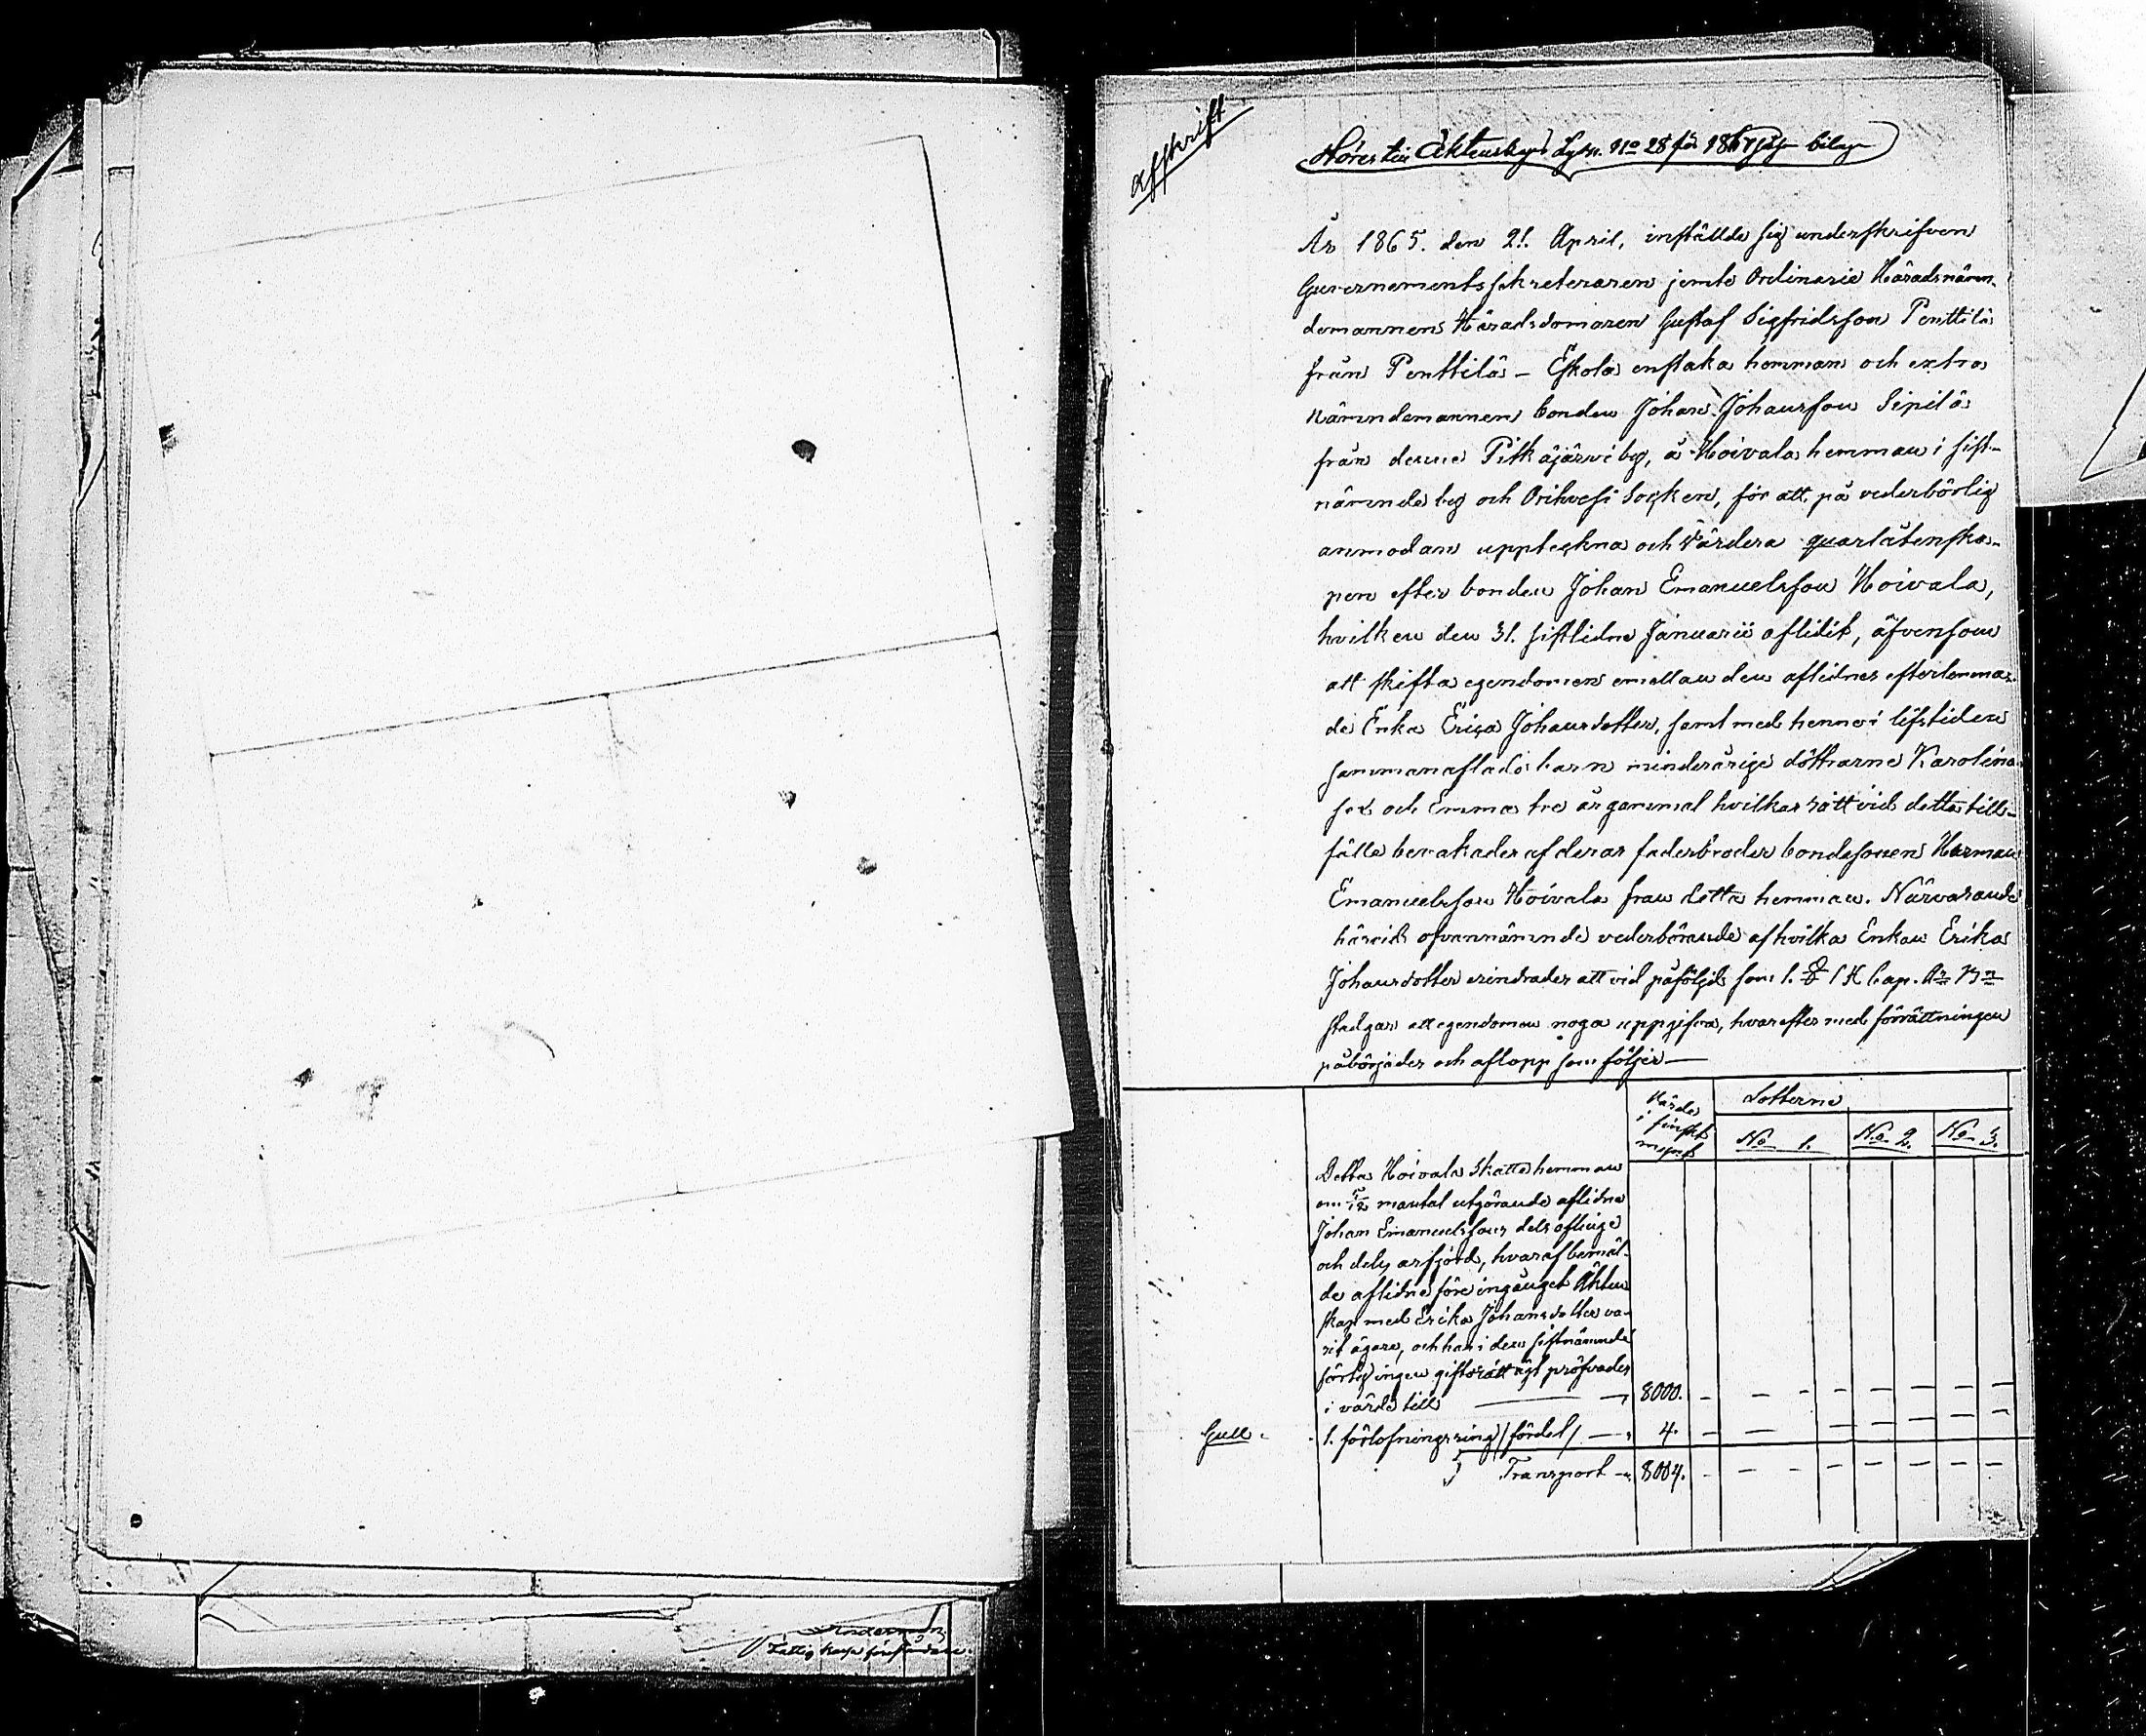 afskrift
Hörer till Äktenskaps Lysn. No 28 för 1867 bilag
År 1865. den 21. April, inställde sig underskrifven
Guvernementssekreteraren jemte Ordinarie Häradsnämn-
demannen Häradsdomaren Gustaf Sigfridsson Penttilä
från Penttilä - Eskola enstaka hemman och extra
nämndemannen bonden Johan Johansson Sipilä
från denne Pitkäjärvi by, å Hoivala hemman i sist-
nämnde by och Orihvesi Socken, för att, på vederbörlig
anmodan uppteckna och värdera quarlåtenska-
pen efter bonden Johan Emanuelsson Hoivala,
hvilken den 31. sistlidne Januarii aflidit, äfvensom
att skifta egendomen emellan den aflidnes efterlemna-
de Enka Erica Johansdotter, samt med henne i lifstiden
sammanaflade barn minderårige döttrarne Karolina
sex och Emma tre år gammal hvilkas rätt vid detta till-
fälle bevakades af deras faderbroder bondesonen Herman
Emanuelsson Hoivala från detta hemman. Närvarande
härvid ofvannämnde vederbörande af hvilka Enkan Erika
Johansdotter erindrades att vid påföljd som 1. § 9 Cap. Ä. Bn
stadgar att egendomen noga uppgifva, hvarefter med förrättningen
påbörjades och aflopp som följer
Värde
i finskt
mynt
Lotterne
No 1.
No 2.
No 3.
Detta Hoivala Skatte hemman
om 5/12 mantal utgörande aflidne
Johan Emanuelssons dels aflinge
och dels arfjord, hvaraf bemäl-
de aflidne före ingånget Äkten
skap med Erika Johansdotter va-
rit ägare, och har i den sistnämnde
särlig ingen giftorätt ägt pröfvades
i värde till — 8000. - - - - - - - -
Gull. 1. förlofningsring /fördel/ — 4. - - - - - -
Transport 8004. - - - - - - - -